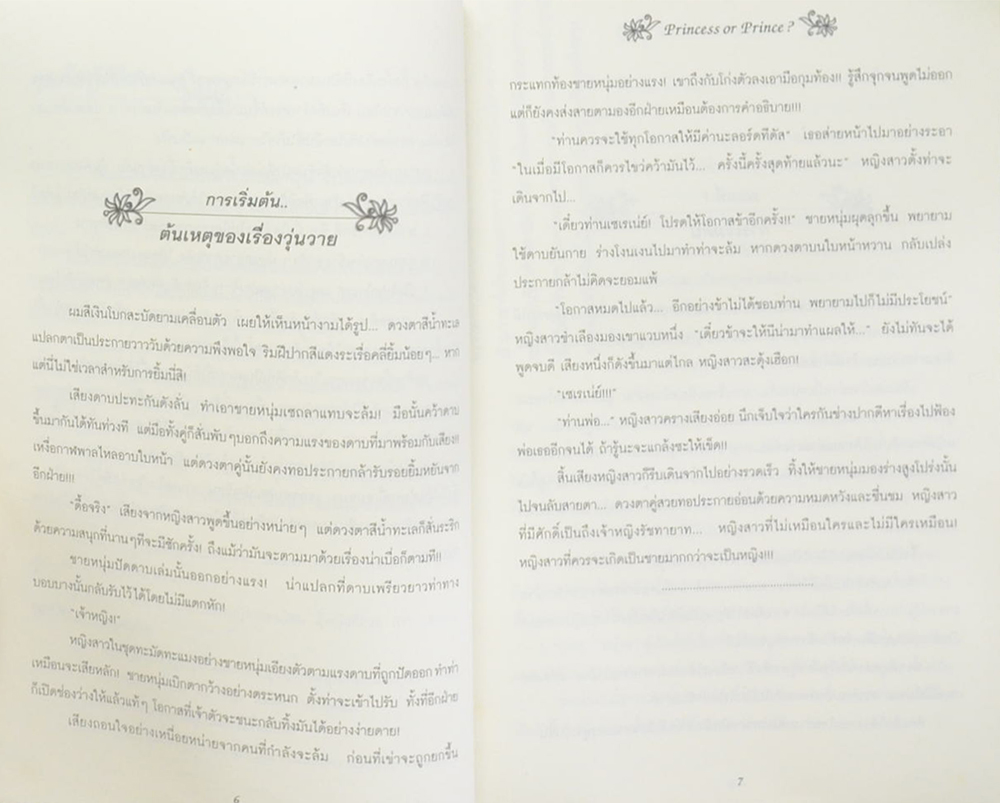 การเริ่มต้น..
ต้นเหตุของเรื่องวุ่นวาย
ผมสีเงินโบกสะบัดยามเคลื่อนตัว เผยให้เห็นหน้างามได้รูป... ดวงตาสีน้ำทะเล
แปลกตาเป็นประกายวาววับด้วยความพึงพอใจ ริมฝีปากสีแดงระเรื่อคลี่ยิ้มน้อยๆ... หาก
แต่นี่ไม่ใช่เวลาสำหรับการยิ้มนี่สิ!
เสียงดาบปะทะกันดังลั่น ทำเอาชายหนุ่มเซถลาแทบจะล้ม! มือนั้นคว้าดาบ
ขึ้นมากันได้ทันท่วงที แต่มือทั้งคู่ก็สั่นพับๆบอกถึงความแรงของดาบที่มาพร้อมกับเสียง!!
เหงื่อกาฬพาลไหลอาบใบหน้า แต่ดวงตาคู่นั้นยังคงทอประกายกล้ารับรอยยิ้มหยันจาก
อีกฝ่าย!!!
"ดื้อจริง" เสียงจากหญิงสาวพูดขึ้นอย่างหน่ายๆ แต่ดวงตาสีน้ำทะเลก็สั่นระริก
ด้วยความสนุกที่นานๆทีจะมีซักครั้ง! ถึงแม้ว่ามันจะตามมาด้วยเรื่องน่าเบื่อก็ตามที!!
ชายหนุ่มปัดดาบเล่มนั้นออกอย่างแรง! น่าแปลกที่ดาบเพรียวยาวท่าทาง
บอบบางนั้นกลับรับไว้ได้โดยไม่มีแตกหัก!
"เจ้าหญิง!"
หญิงสาวในชุดทะมัดทะแมงอย่างชายหนุ่มเอียงตัวตามแรงดาบที่ถูกปัดออก ทำท่า
เหมือนจะเสียหลัก! ชายหนุ่มเบิกตากว้างอย่างตระหนก ตั้งท่าจะเข้าไปรับ ทั้งที่อีกฝ่าย
ก็เปิดช่องว่างให้แล้วแท้ๆ โอกาสที่เจ้าตัวจะชนะกลับทิ้งมันได้อย่างง่ายดาย!
เสียงถอนใจอย่างเหนื่อยหน่ายจากคนที่กำลังจะล้ม ก่อนที่เข่าจะถูกยกขึ้น
6
Princess or Prince ?
กระแทกท้องชายหนุ่มอย่างแรง! เขาถึงกับโก่งตัวลงเอามือกุมท้อง!! รู้สึกจุกจนพูดไม่ออก
แต่ก็ยังคงส่งสายตามองอีกฝ่ายเหมือนต้องการคำอธิบาย!!!
"ท่านควรจะใช้ทุกโอกาสให้มีค่านะลอร์ดทีตัส" เธอส่ายหน้าไปมาอย่างระอา
"ในเมื่อมีโอกาสก็ควรไขว่คว้ามันไว้... ครั้งนี้ครั้งสุดท้ายแล้วนะ" หญิงสาวตั้งท่าจะ
เดินจากไป...
"เดี๋ยวท่านเซเรเน่ย์! โปรดให้โอกาสข้าอีกครั้ง!!" ชายหนุ่มผุดลุกขึ้น พยายาม
ใช้ดาบยันกาย ร่างโงนเงนไปมาทำท่าจะล้ม หากดวงตาบนใบหน้าหวาน กลับเปล่ง
ประกายกล้าไม่คิดจะยอมแพ้
"โอกาสหมดไปแล้ว... อีกอย่างข้าไม่ได้ชอบท่าน พยายามไปก็ไม่มีประโยชน์"
หญิงสาวชำเลืองมองเขาแวบหนึ่ง "เดี๋ยวข้าจะให้มีน่ามาทำแผลให้..." ยังไม่ทันจะได้
พูดจบดี เสียงหนึ่งก็ดังขึ้นมาแต่ไกล หญิงสาวสะดุ้งเฮือก!
"เซเรเน่ย์!!!"
"ท่านพ่อ..." หญิงสาวครางเสียงอ่อย นึกเจ็บใจว่าใครกันช่างปากดีหาเรื่องไปฟ้อง
พ่อเธออีกจนได้ ถ้ารู้นะจะแกล้งซะให้เข็ด!!
สิ้นเสียงหญิงสาวก็รีบเดินจากไปอย่างรวดเร็ว ทิ้งให้ชายหนุ่มมองร่างสูงโปร่งนั้น
ไปจนลับสายตา... ดวงตาคู่สวยทอประกายอ่อนด้วยความหมดหวังและชื่นชม หญิงสาว
ที่มีศักดิ์เป็นถึงเจ้าหญิงรัชทายาท... หญิงสาวที่ไม่เหมือนใครและไม่มีใครเหมือน!
หญิงสาวที่ควรจะเกิดเป็นชายมากกว่าจะเป็นหญิง!!!
7